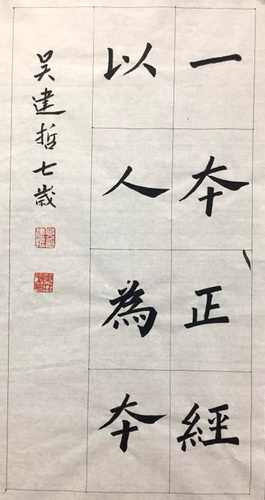 一本正經
以人為本
吴建哲七歲